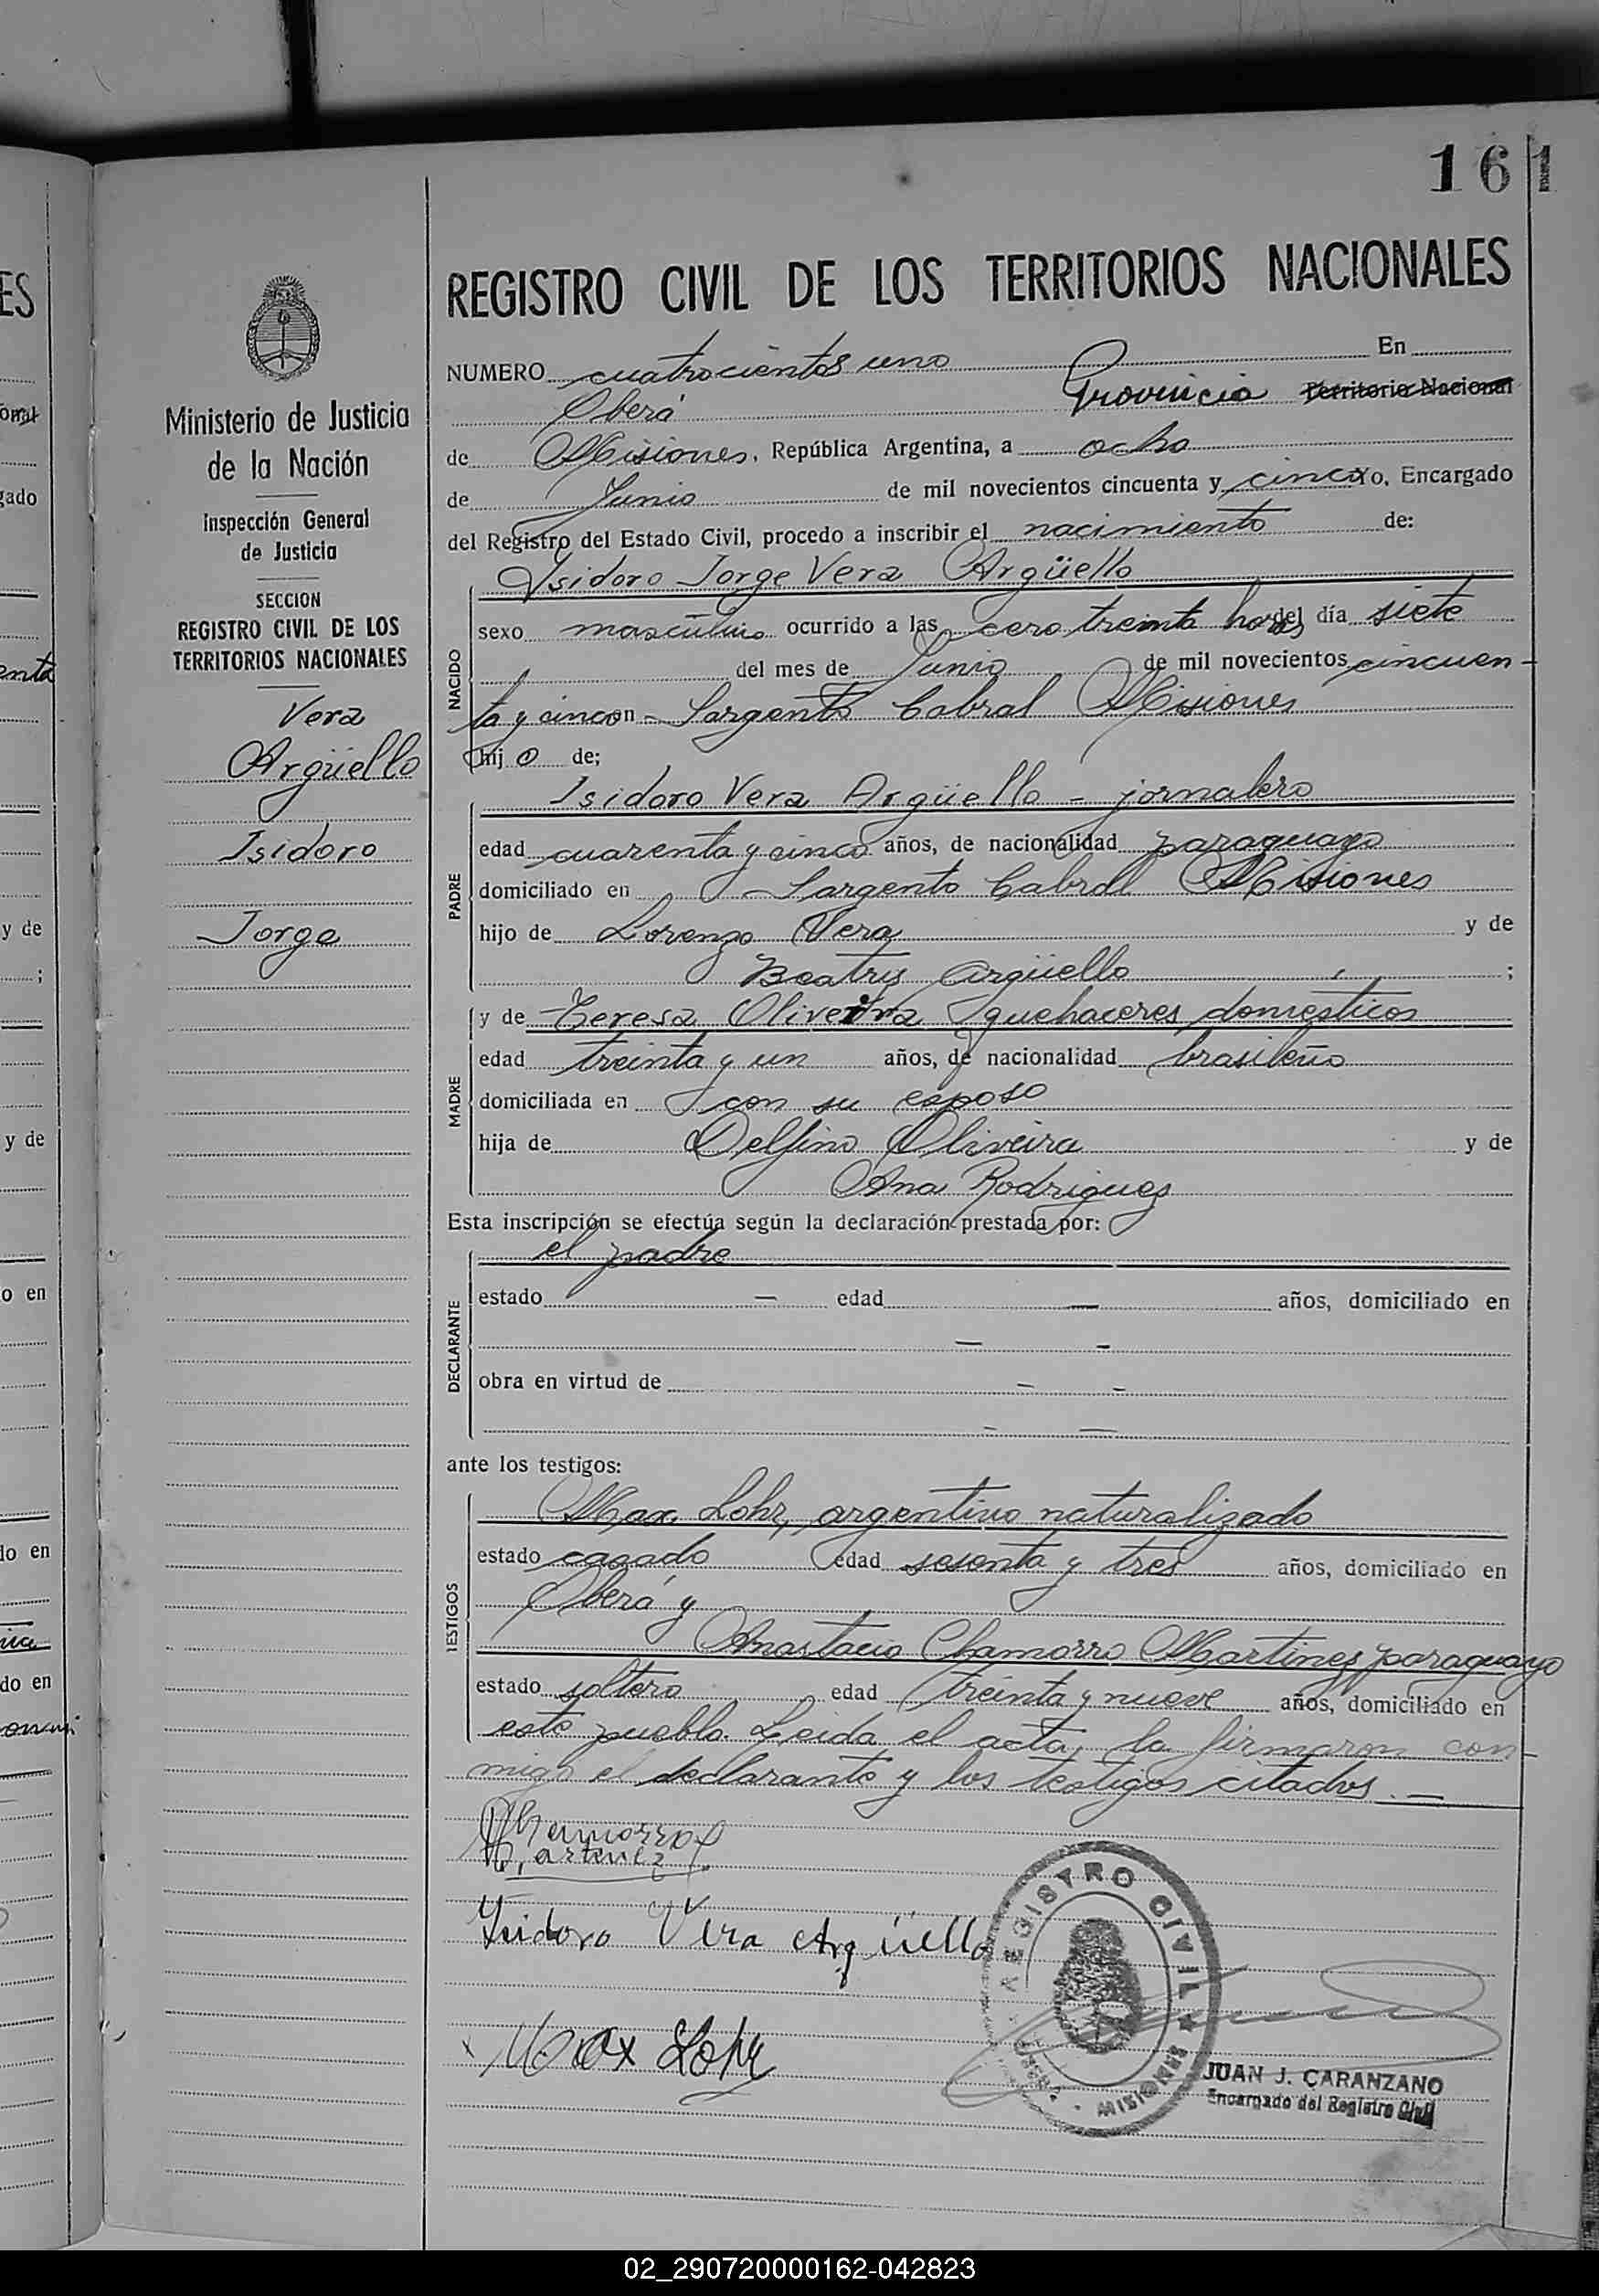 161
REGISTRO CIVIL DE LOS TERRITORIOS NACIONALES
Ministerio de Justicia
de la Nación
Inspección General
de Justicia
SECCION
REGISTRO CIVIL DE LOS
TERRITORIOS NACIONALES
Vera
Argüello
Isidoro
Jorge
NUMERO cuatrocientos uno En
Oberá Provincia Territorio Nacional
de Misiones, República Argentina, a ocho
de Junio de mil novecientos cincuenta y cinco yo, Encargado
del Registro del Estado Civil, procedo a inscribir el nacimiento de:
Isidoro Jorge Vera Argüello
NACIDO
sexo masculino ocurrido a las cero treinta horas del día siete
del mes de Junio de mil novecientos cincuen-
ta y cinco en Sargento Cabral Misiones
hijo de;
PADRE
Isidoro Vera Argüello - jornalero
edad cuarenta y cinco años, de nacionalidad paraguayo
domiciliado en Sargento Cabral Misiones
hijo de Lorenzo Vera y de
Beatris Argüello ;
MADRE
y de Teresa Oliveira quehaceres domésticos
edad treinta y un años, de nacionalidad brasileña
domiciliada en con su esposo
hija de Delfino Oliveira y de
Ana Rodrigues
Esta inscripción se efectúa según la declaración prestada por:
DECLARANTE
el padre
estado — edad — años, domiciliado en
— -
obra en virtud de — -
- —
ante los testigos:
TESTIGOS
Max Lohr, argentino naturalizado
estado casado edad sesenta y tres años, domiciliado en
Oberá y
Anastacio Chamorro Martinez paraguayo
estado soltero edad treinta y nueve años, domiciliado en
este pueblo. Leida el acta, la firmaron con-
migo el declarante y los testigos citados. —
Chamorro
Martinez
Isidoro Vera Argüello
Max Lohr
REGISTRO CIVIL
MISIONES
JUAN J. CARANZANO
Encargado del Registro Civil
02_290720000162-042823